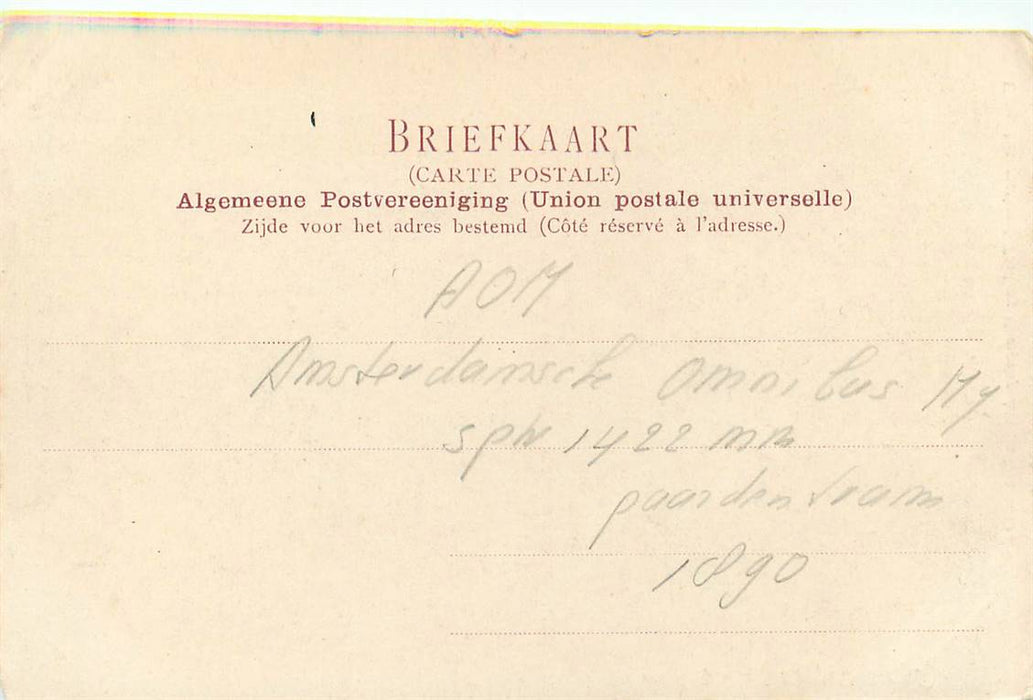 BRIEFKAART
(CARTE POSTALE)
Algemeene Postvereeniging (Union postale universelle)
Zijde voor het adres bestemd (Côté réservé à l'adresse.)
AOM
Amsterdamsche Omnibus My
spw 1422 mm
paardentram
1890